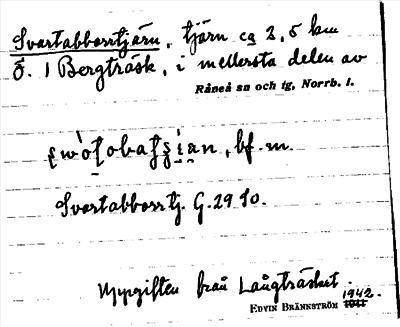 Svartabborrtjärn, tjärn ca 2,5 km
Ö. i Bergträsk, i mellersta delen av
Råneå sn och tg, Norrb. l.
bf. m.
Svartabborrtj. G. 29 SO.
Uppgiften från Långträsket
Edvin Brännström 1942.